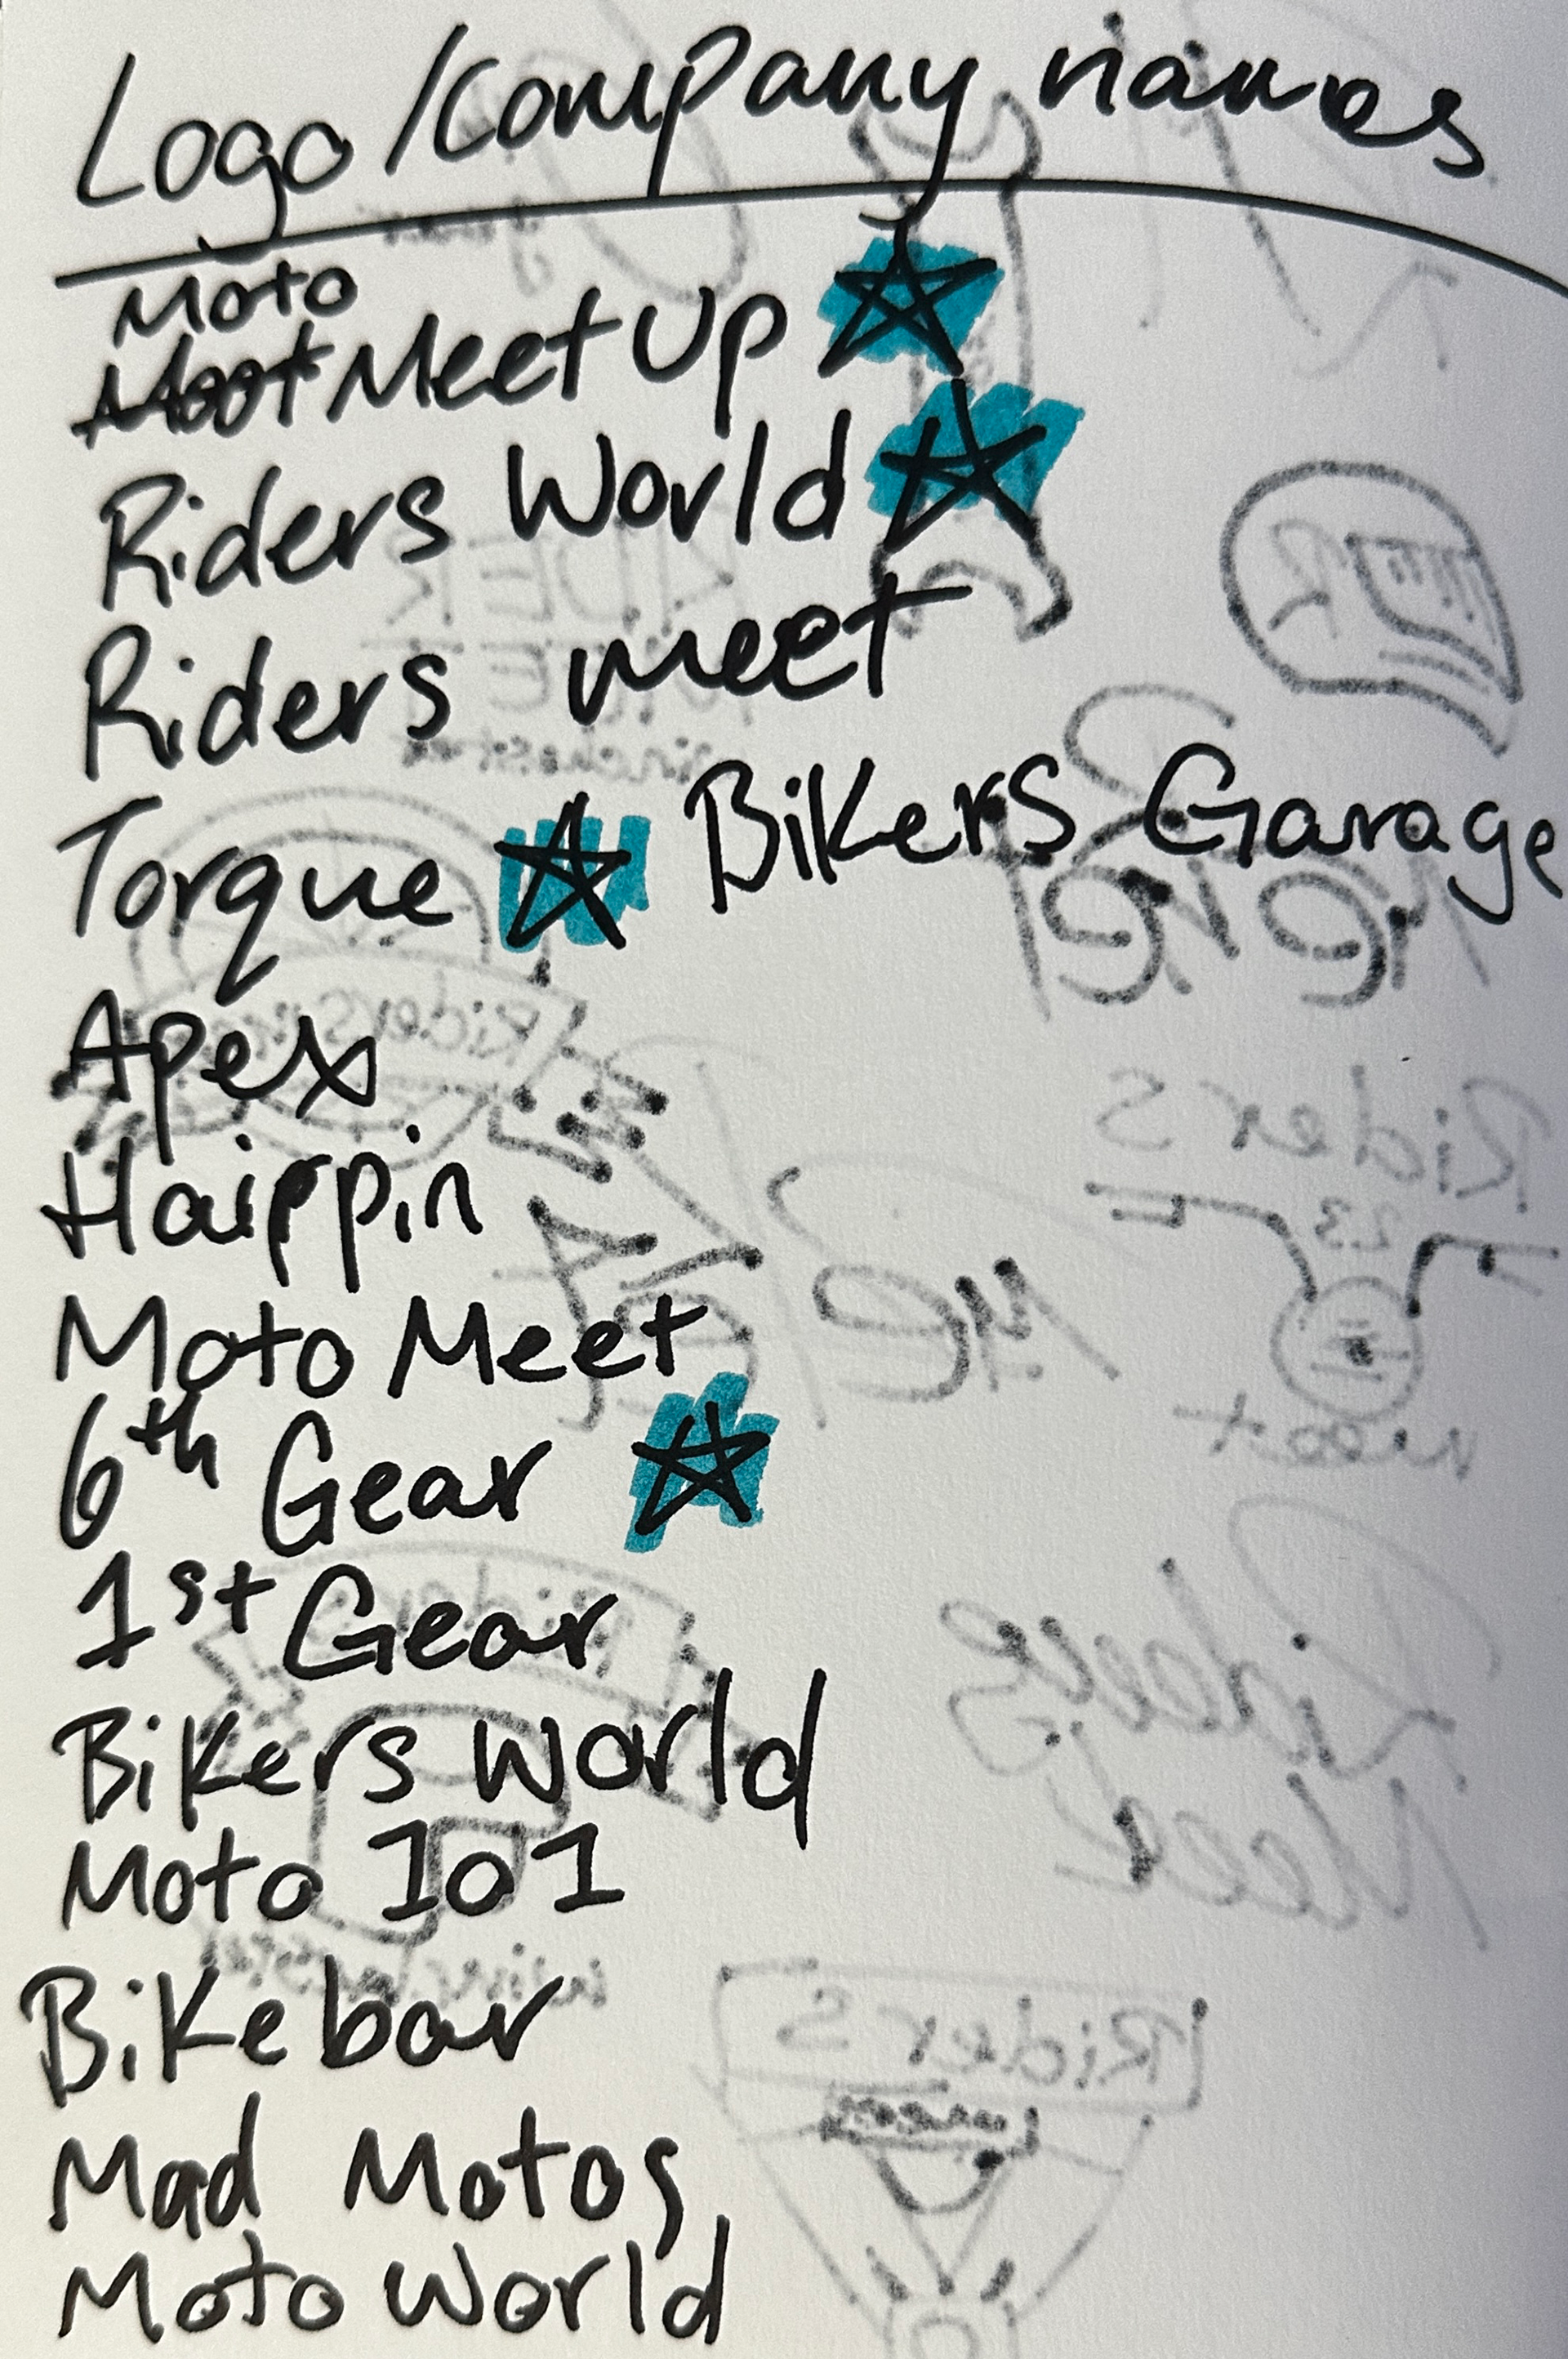 Logo/Company names
Moto
Meet Up
Riders World
Riders meet
Torque
Bikers Garage
Apex
Haippin
Moto Meet
6th Gear
1st Gear
Bikers World
Moto 101
Bike bar
Mad Motos
Moto World